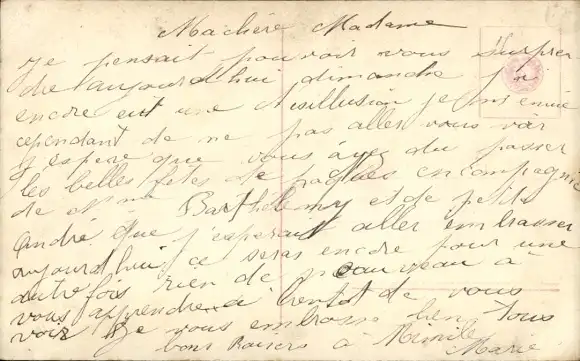 Machère Madame
Je pensait pouvoir vous surpren
dre aujourd'hui dimanche j'ai
encore eut une désillusion je m'ennuie
cependant de ne pas aller vous voir
J'espère que vous avez du passer
les belles fêtes de paques en compagnie
de Mme Barthélemy et de petit
André que j'esperait aller embrasser
aujourd'hui ce seras encore pour une
autre fois rien de nouveau à
vous apprendre à bientot de vous
voir Je vous embrasse bien tous
bons Baisers à Mimile
Marie